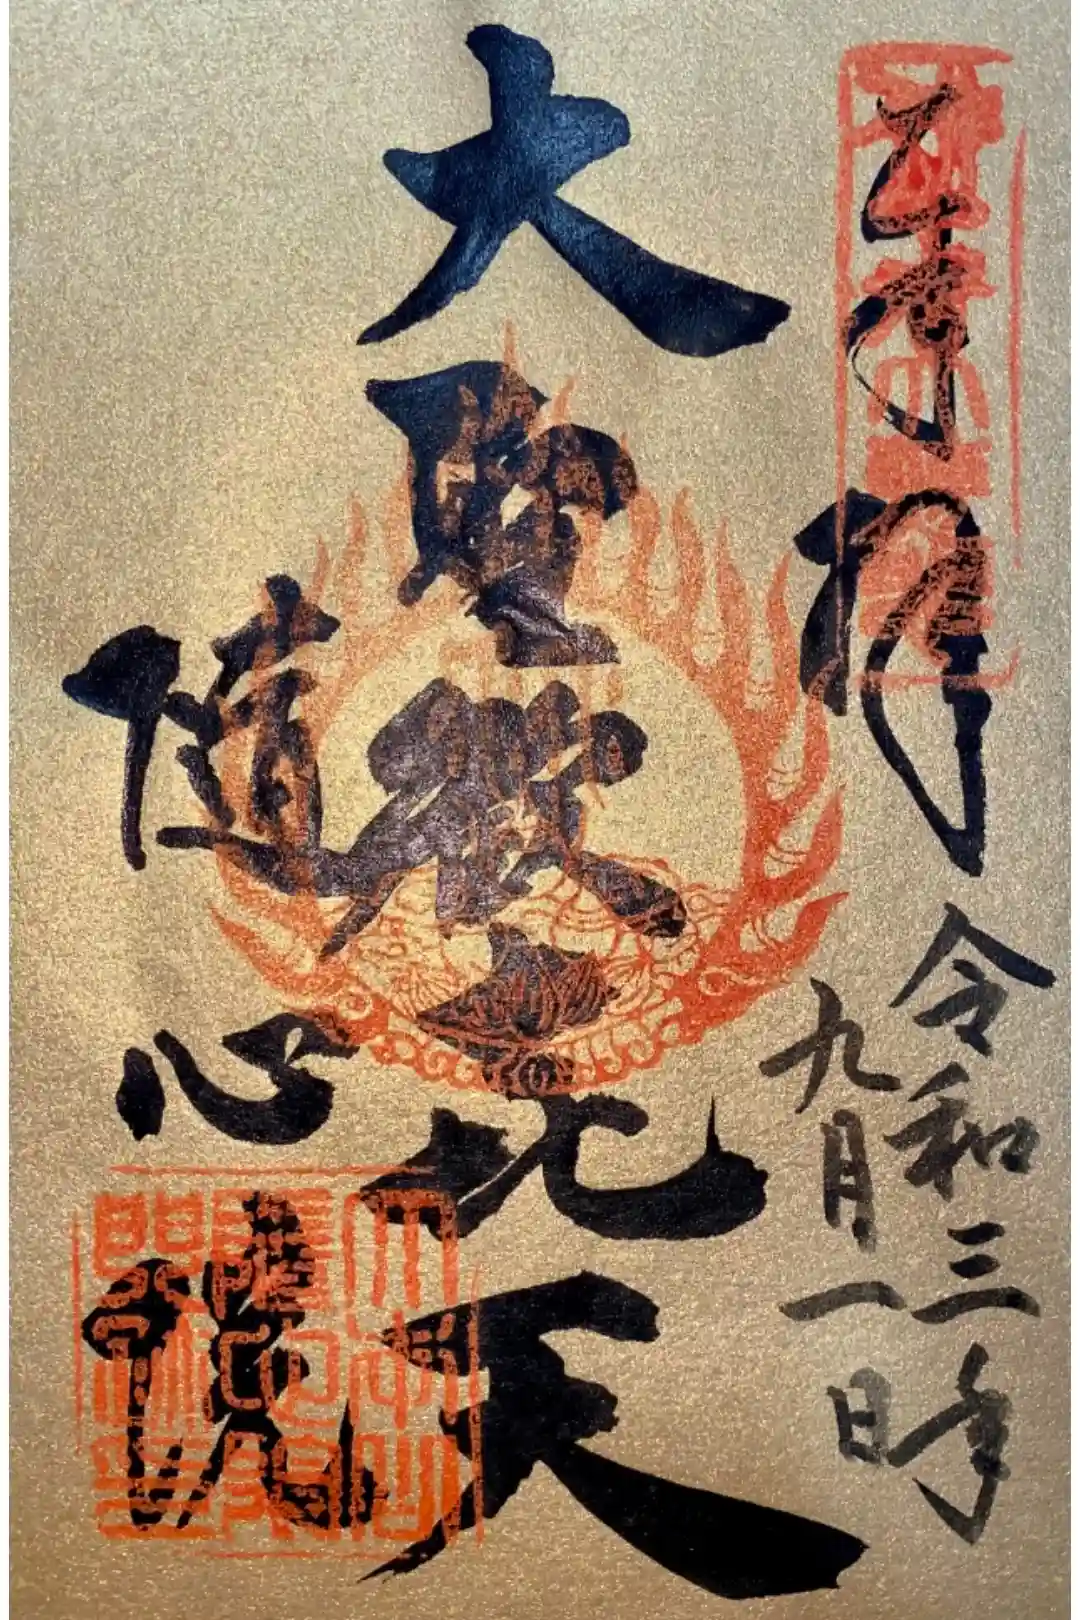 奉拝
令和三年
九月一日
大聖歓㐂天
随心院